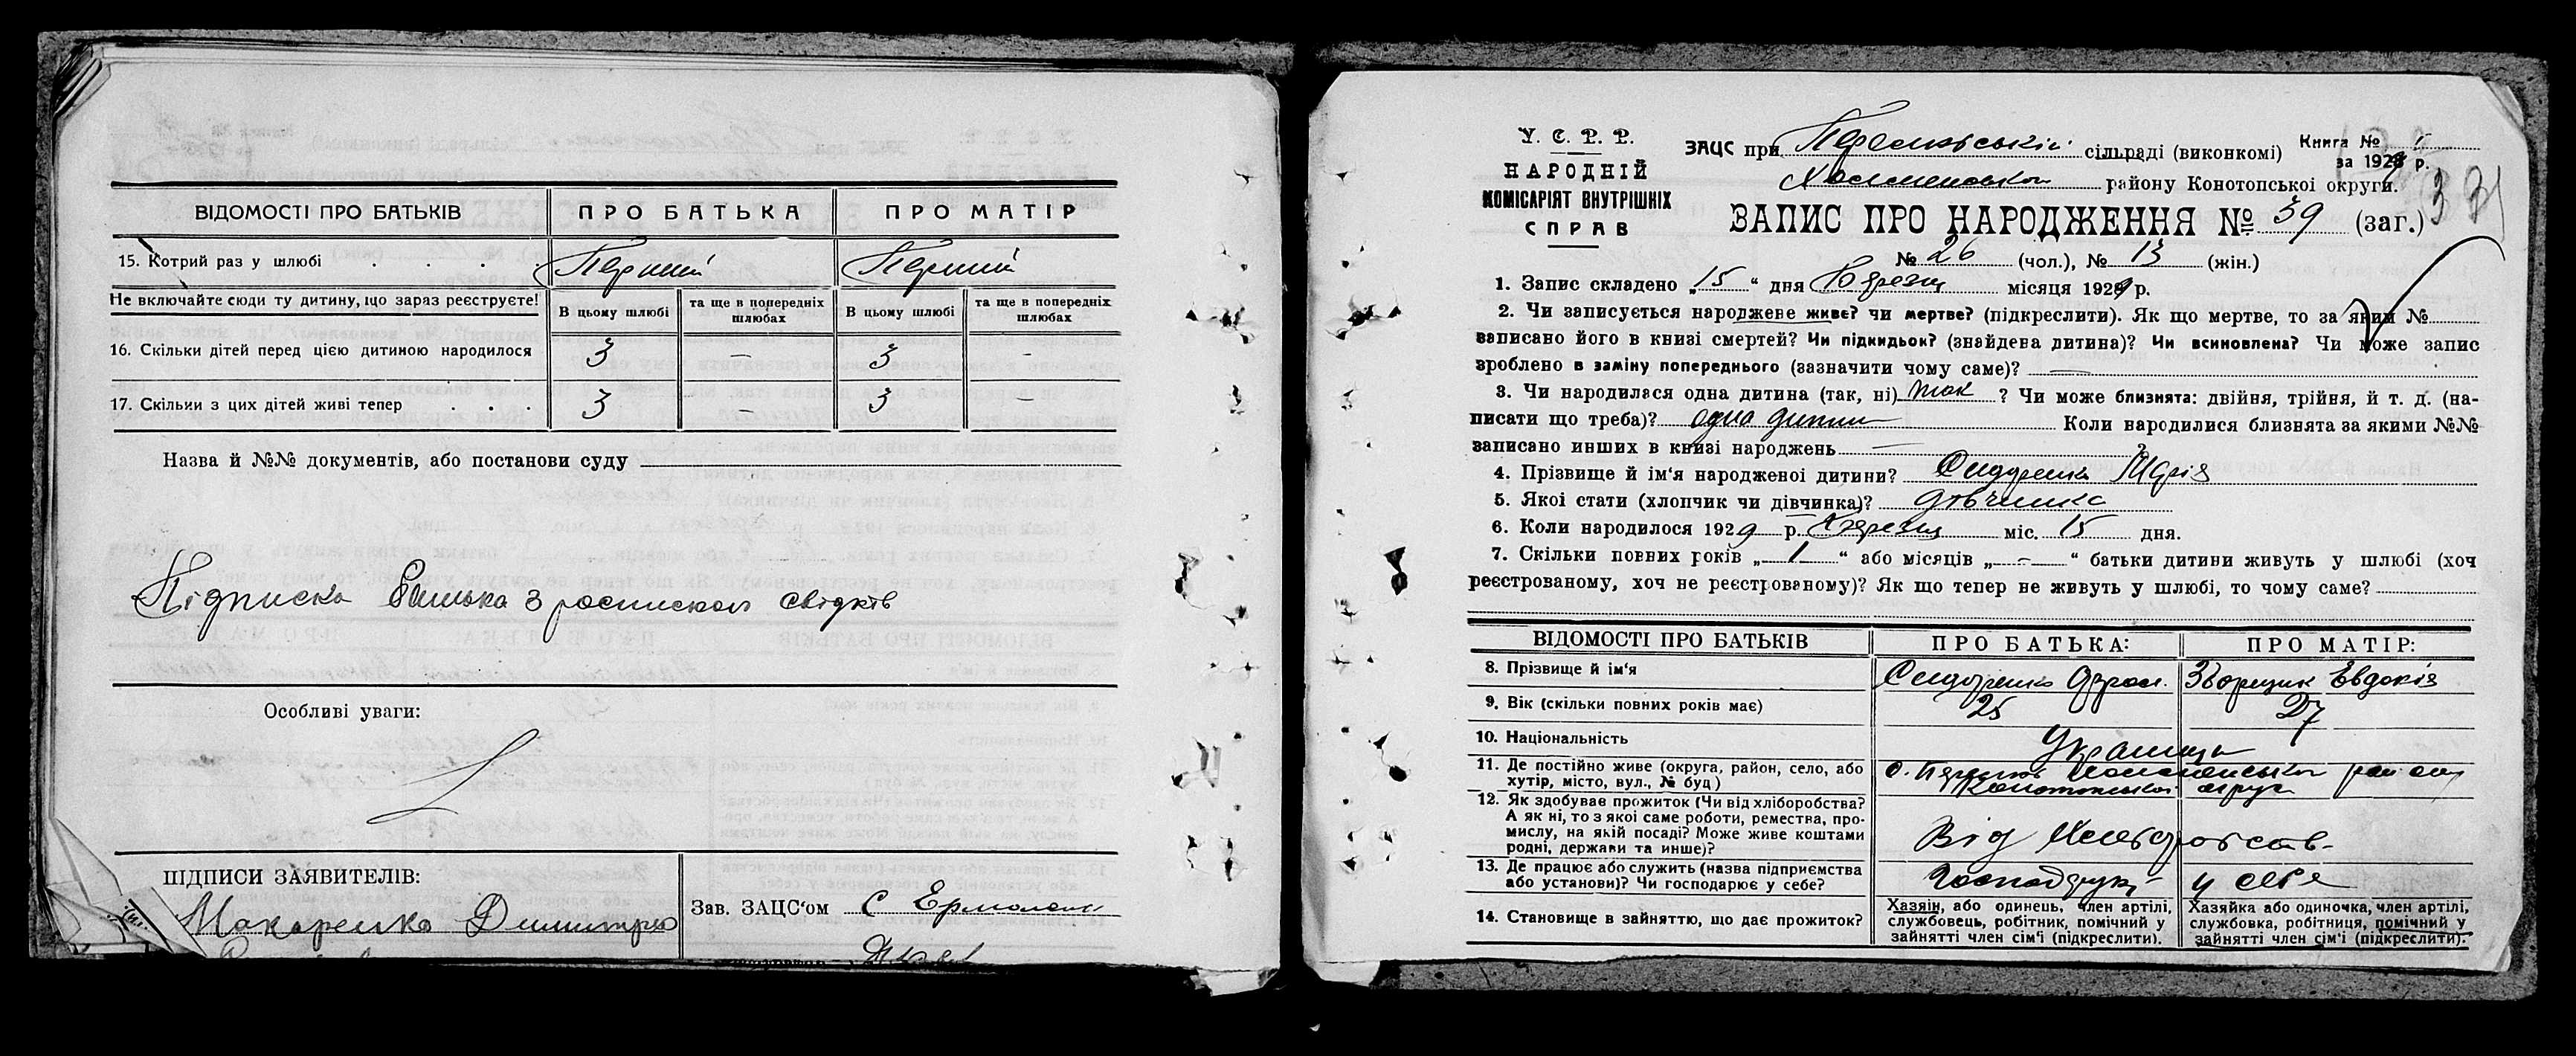 ВІДОМОСТІ ПРО БАТЬКІВ ПРО БАТЬКА ПРО МАТІР
15. Котрий раз у шлюбі . . . . Перший Перший
Не включайте сюди ту дитину, що зараз реєструєте! В цьому шлюбі та ще в попередніх шлюбах В цьому шлюбі та ще в попередніх шлюбах
16. Скільки дітей перед цією дитиною народилося 3 – 3 –
17. Скільки з цих дітей живі тепер . . . 3 – 3 –
Назва й №№ документів, або постанови суду
Підписка батька з роспискою свідків
Особливі уваги:
ПІДПИСИ ЗАЯВИТЕЛІВ:
Макаренко Димитро
Зав. ЗАЦС'ом С Ермоленк
У. С. Р. Р.
НАРОДНІЙ
КОМІСАРІЯТ ВНУТРІШНІХ
СПРАВ
ЗАЦС при сільраді (виконкомі)
району Конотопської округи.
Книга №
за 1929 р.
33
ЗАПИС ПРО НАРОДЖЕННЯ № 39 (заг.)
№ 26 (чол.), № 13 (жін.)
1. Запис складено „15“ дня Березня місяця 1929 р.
2. Чи записується народжене живе? чи мертве? (підкреслити). Як що мертве, то за яким №
записано його в книзі смертей? Чи підкидьок? (знайдена дитина)? Чи всиновлена? Чи може запис
зроблено в заміну попереднього (зазначити чому саме)? —
3. Чи народилася одна дитина (так, ні) так ? Чи може близнята: двійня, трійня, й т. д. (на-
писати що треба)? одна дитина Коли народилися близнята за якими №№
записано инших в книзі народжень — ?
4. Прізвище й ім'я народженої дитини? Сидоренко Марія
5. Якої стати (хлопчик чи дівчинка)? дівчинка
6. Коли народилося 1929 р. Березня міс. 15 дня.
7. Скільки повних років „1“ або місяців „-“ батьки дитини живуть у шлюбі (хоч
реєстрованому, хоч не реєстрованому)? Як що тепер не живуть у шлюбі, то чому саме?
ВІДОМОСТІ ПРО БАТЬКІВ ПРО БАТЬКА: ПРО МАТІР:
8. Прізвище й ім'я Сидоренко Зборщик Евдокія
9. Вік (скільки повних років має) 25 27
10. Національність Українці
11. Де постійно живе (округа, район, село, або
хутір, місто, вул., № буд) с. району
Конотопської округи
12. Як здобуває прожиток (Чи від хліборобства?
А як ні, то з якої саме роботи, ремества, про-
мислу, на якій посаді? Може живе коштами
родні, держави та инше)? Від Хлібороб
13. Де працює або служить (назва підприємства
або установи)? Чи господарює у себе? у себе
14. Становище в зайняттю, що дає прожиток?
Хазяін, або одинець, член артілі,
службовець, робітник, помічний у
зайнятті член сім'ї (підкреслити).
Хазяйка або одиночка, член артілі,
службовка, робітниця, помічний у
зайнятті член сім'ї (підкреслити).